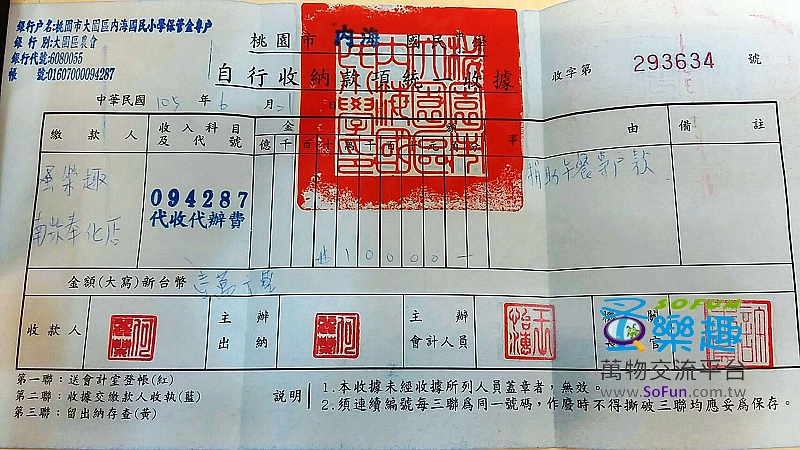 銀行戶名:桃園市大園區內海國民小學保管金專戶
銀行別:大園區農會
銀行代號:6080055
帳號:01607000094287
桃園市 內海 國民小學
自行收納款項統一收據
收字第 293634 號
中華民國 105 年 6 月 21 日
繳款人 收入科目及代號 金額 事由 備註
億 千 百 十 萬 千 百 十 元
歪樂趣
南崁奉化店
094287
代收代辦費
10000
補助午餐專戶款
金額(大寫)新台幣 壹萬
收款人 主辦出納 主辦會計人員 機關長官
SOFUN
歪樂趣
萬物交流平台
www.SoFun.com.tw
第一聯:送會計室登帳(紅)
第二聯:收據交繳款人收執(藍)
第三聯:留出納存查(黃)
說明
1.本收據未經收據所列人員蓋章者,無效。
2.須連續編號每三聯為同一號碼,作廢時不得撕破三聯均應妥為保存。